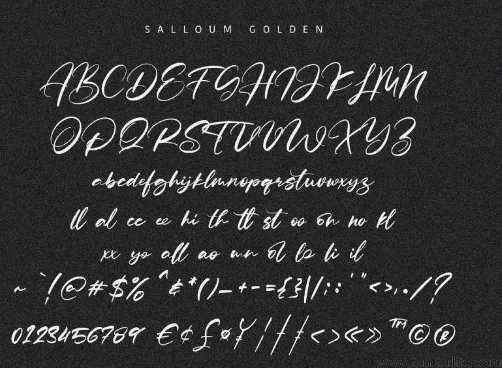 SALLOUM GOLDEN
ABCDEFGHIJKLMN
OPQRSTUVWXYZ
abcdefghijklmnopqrstuvwxyz
ll al cc ee hi th tt st oo on no kl
xx yo all ao wn ol lo li il
~ ` ! @ # $ % ^ & * ( ) _ + - = { } | / : ; ' " < > , . / ?
0123456789 € ¢ £ ¤ ¥ | / < > « » ™ © ®